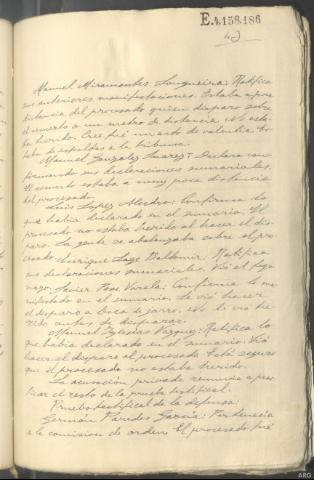 E.4.158.186
Manuel Miramontes Longueira: Ratifica
sus anteriores manifestaciones. Estaba a poca
distancia del procesado quien disparo sobre
el muerto a un metro de distancia. No esta-
ba herido. Cree fué un acto de valentia. Es-
taba de espaldas a la tribuna.
Manuel Gonzalez Suarez: Declara con-
firmando sus declaraciones sumariales.
El muerto estaba a muy poca distancia
del procesado.
Luis Lopez: Confirma lo
que habia declarado en el sumario. El
procesado no estaba herido al hacer el dis-
paro. La gente se abalanzaba sobre el pro-
cesado. Enrique Lage Baldomir: Ratifica
sus declaraciones sumariales. Vió el fogo-
nazo. Javier Pose Varela: Confirma lo ma-
nifestado en el sumario. Le vió hacer
el disparo a boca de jarro. No le vio he-
rido antes de disparar.
Manuel Iglesias Vazquez: Ratifica lo
que habia declarado en el sumario. Vió
hacer el disparo al procesado. Está seguro
que el procesado no estaba herido.
La acusación privada renuncia a prac-
ticar el resto de la prueba testifical.
Prueba testifical de la defensa:
Germán Paredes Garcia: Pertenecia
a la comision de orden. El procesado fué
ARG